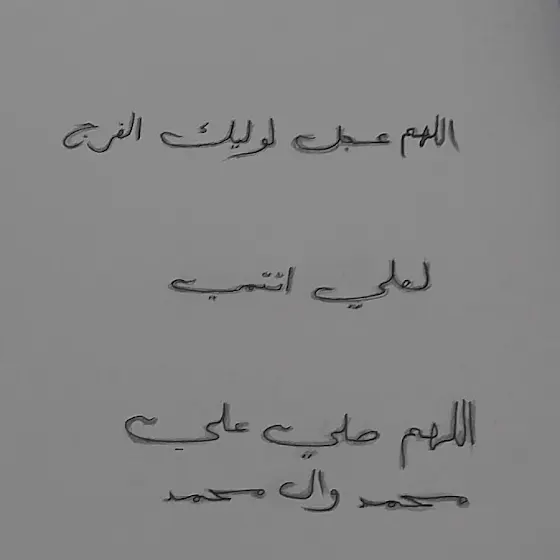 اللهم عجل لوليك الفرج
لعلي انتمي
اللهم صلي علي
محمد وال محمد